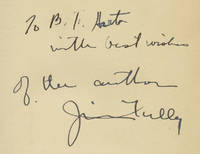 To B. F.
with best wishes
of the author
Jim Tully